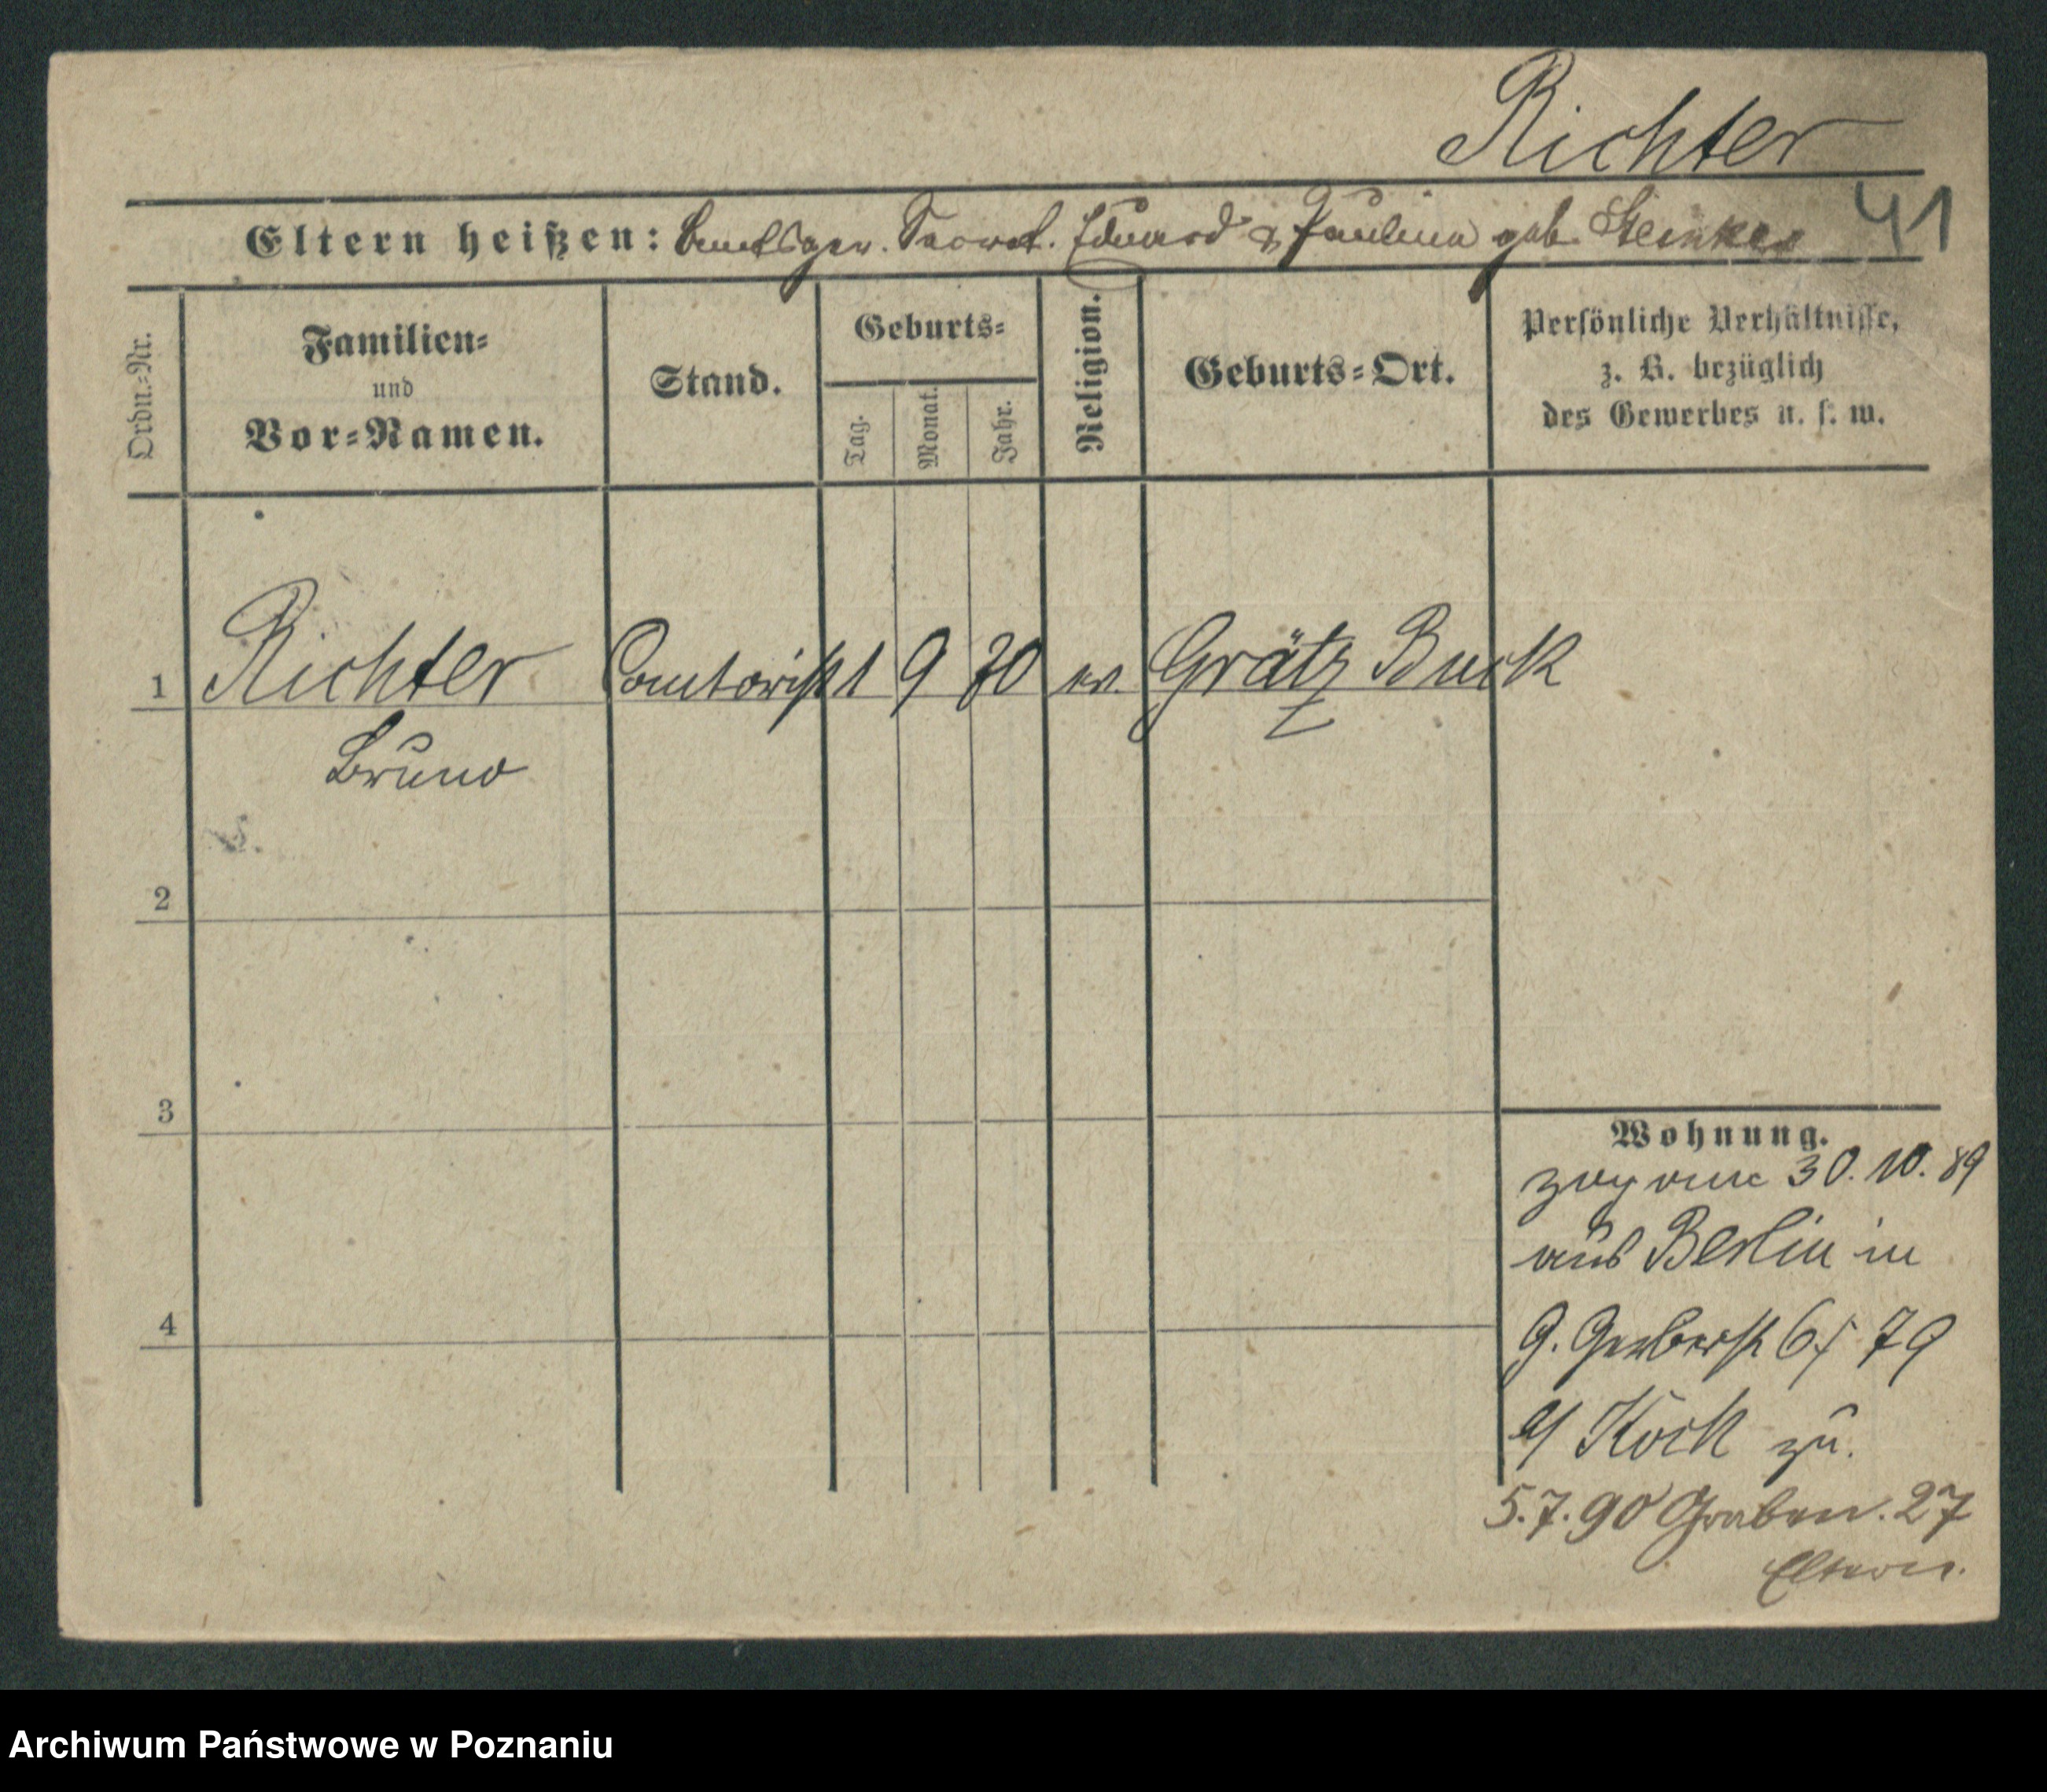 Richter
41
Eltern heißen: Amtsger. Secret. Eduard & Pauline geb. Steinke
Ordn.-Nr.
Familien-
und
Vor-Namen.
Stand.
Geburts-
Tag.
Monat.
Jahr.
Religion.
Geburts-Ort.
Persönliche Verhältnisse,
z. B. bezüglich
des Gewerbes u. s. w.
1 Richter Comtorist 1 9 70 ev. Grätz Buck
Bruno
2
3
4
Wohnung.
zog am 30.10.89
aus Berlin in
G. Gerberst 6/ 79
b/ Kock zu.
5.7.90 Graben. 27
Eltern.
Archiwum Państwowe w Poznaniu